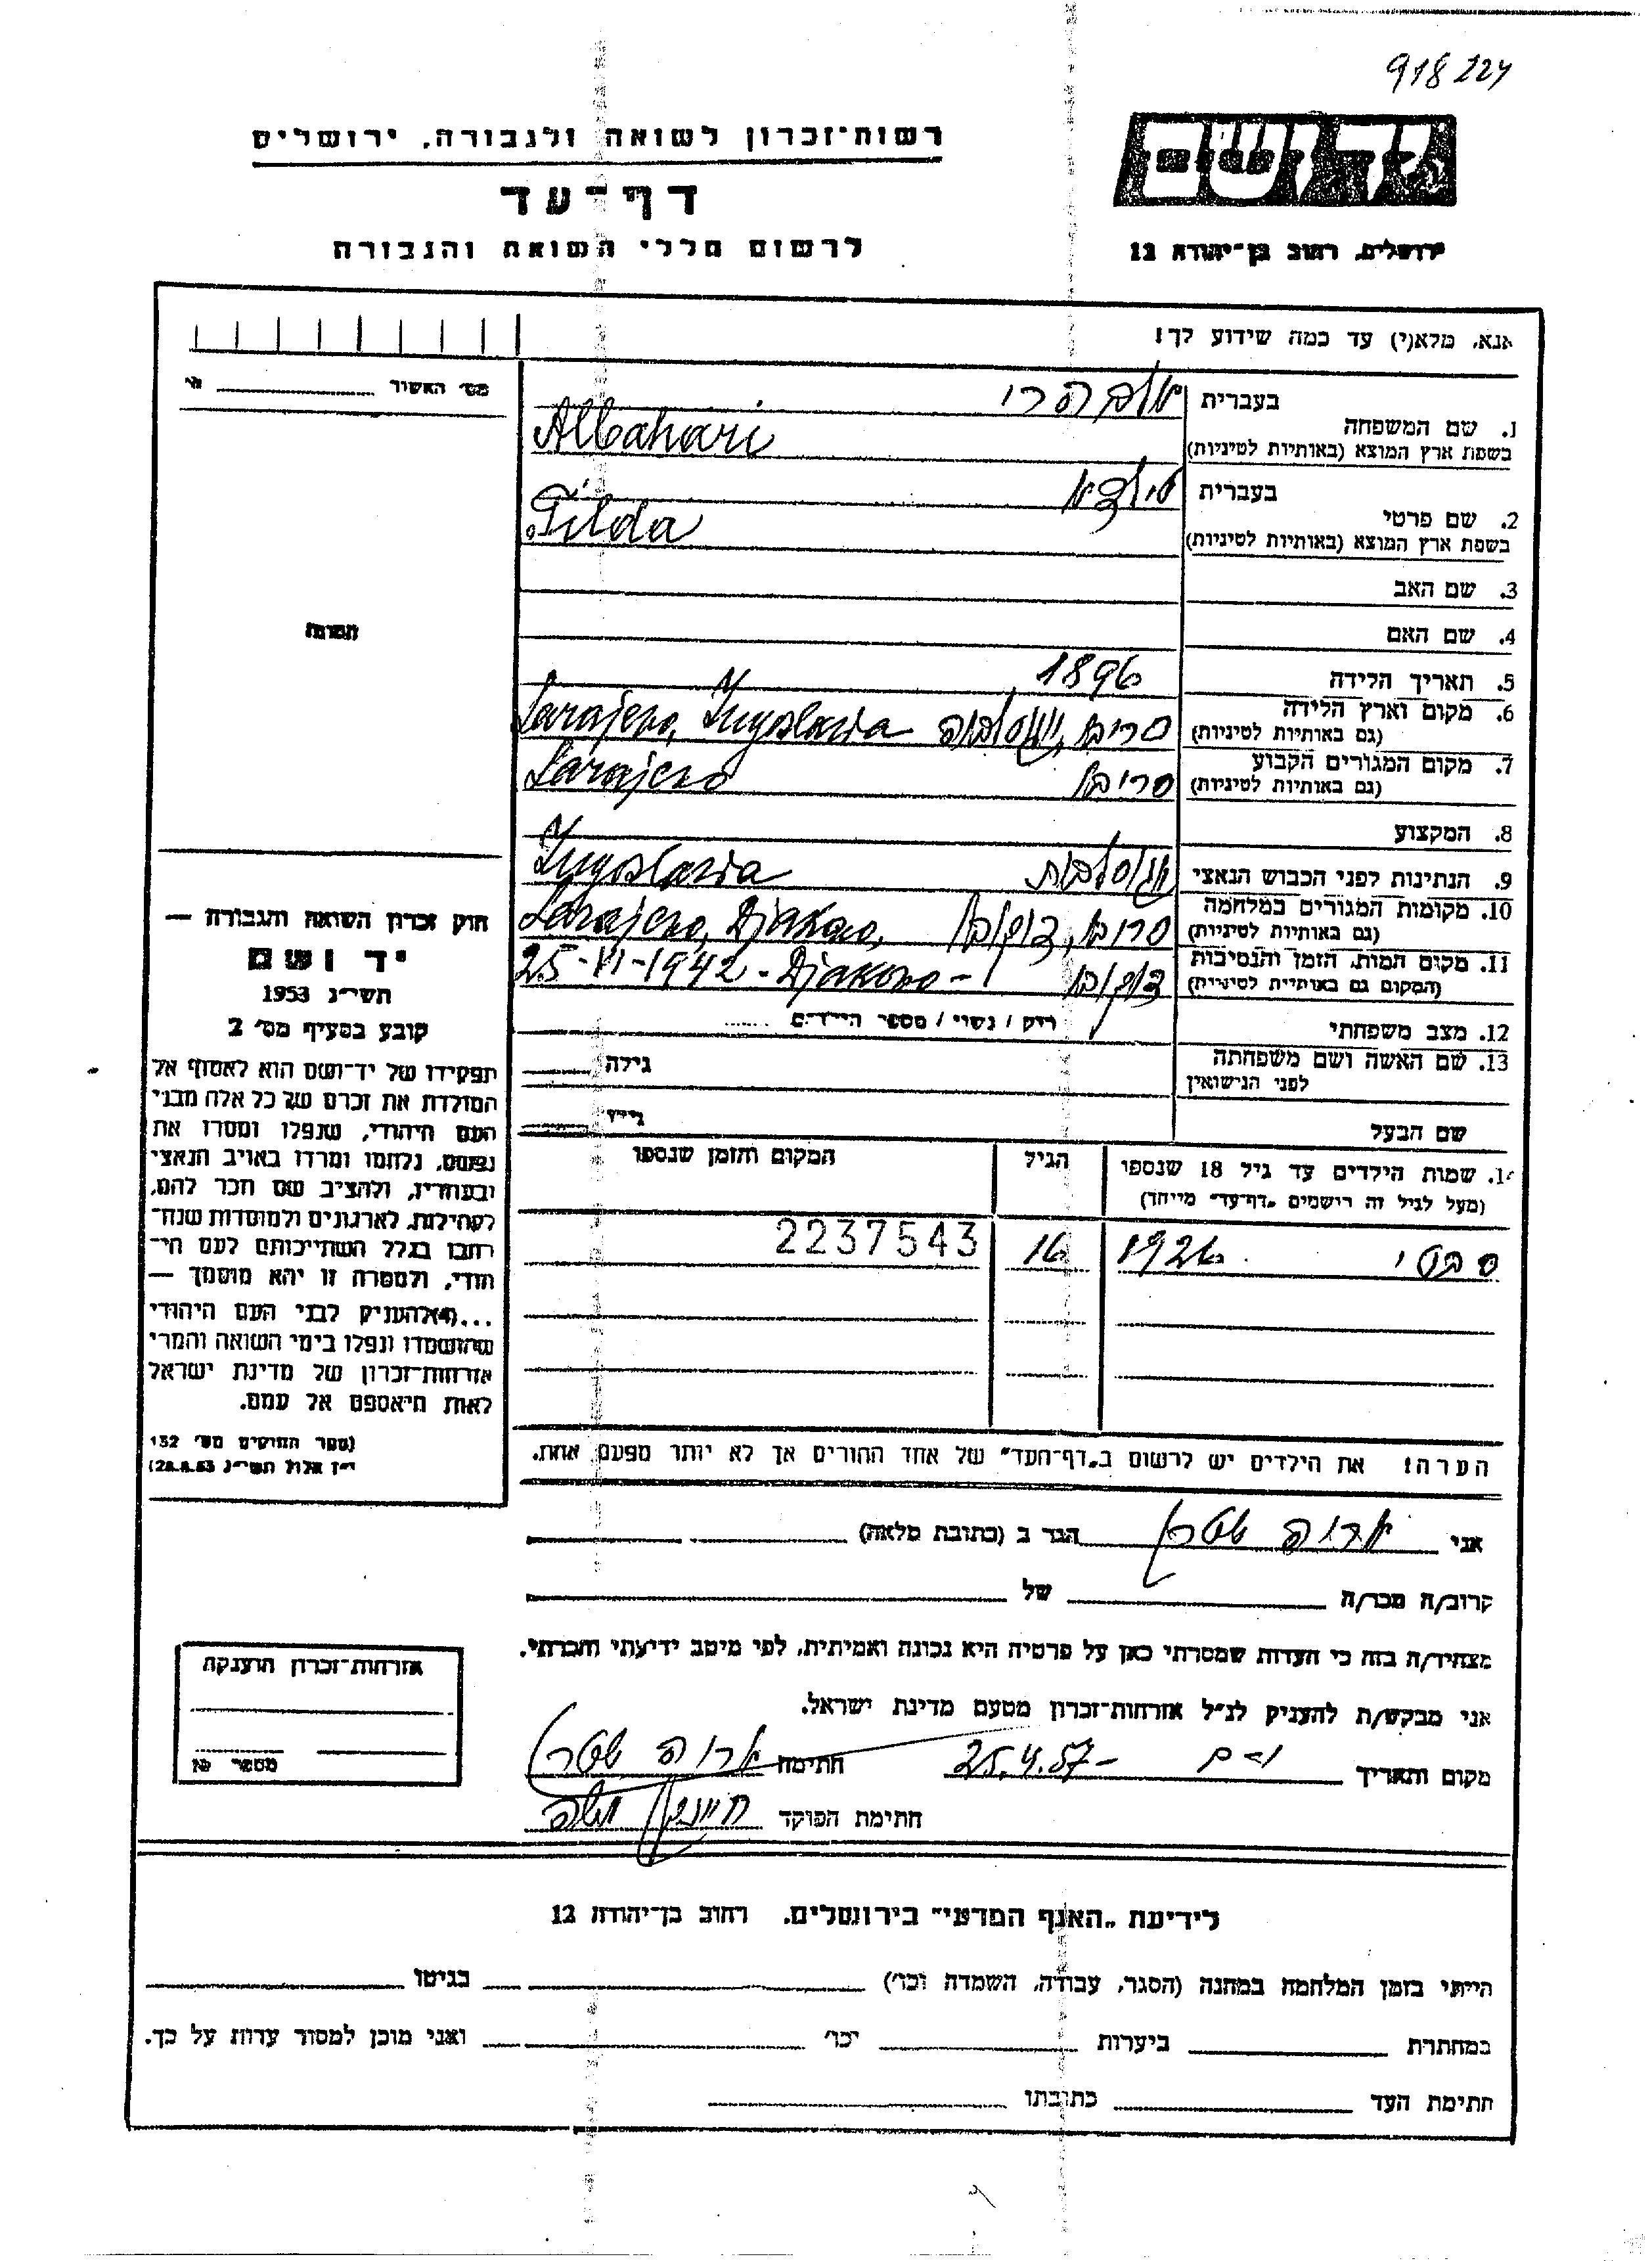 918224
יד ושם
רשות־זכרון לשואה ולגבורה, ירושלים
דף־עד
לרשום חללי השואה והגבורה
ירושלים, רחוב בן־יהודה 12
אנא, מלא(י) עד כמה שידוע לך!
מס׳ האשור
1. שם המשפחה
בעברית אלבהרי
בשפת ארץ המוצא (באותיות לטיניות) Albahari
2. שם פרטי
בעברית טילדא
בשפת ארץ המוצא (באותיות לטיניות) Tilda
3. שם האב
4. שם האם
תמונה
5. תאריך הלידה 1896
6. מקום וארץ הלידה
(גם באותיות לטיניות) Sarajevo, Yugoslavia
7. מקום המגורים הקבוע
(גם באותיות לטיניות) Sarajevo
8. המקצוע
9. הנתינות לפני הכבוש הנאצי Yugoslavia
10. מקומות המגורים במלחמה
(גם באותיות לטיניות) Sarajevo, Djakovo,
11. מקום המות, הזמן והנסיבות
(המקום גם באותיות לטיניות) 25-VI-1942 - Djakovo -
12. מצב משפחתי רווק / נשוי / מספר הילדים
13. שם האשה ושם משפחתה
לפני הנישואין גילה
שם הבעל גילו
14. שמות הילדים עד גיל 18 שנספו הגיל המקום והזמן שנספו
(מעל לגיל זה רישמים „דף־עד״ מייחד)
סבטי 1926 16 2237543
הערה: את הילדים יש לרשום ב„דף־העד״ של אחד ההורים אך לא יותר מפעם אחת.
חוק זכרון השואה והגבורה —
יד ושם
תשי״ג 1953
קובע בסעיף מס׳ 2
תפקידו של יד־ושם הוא לאסוף אל
המולדת את זכרם של כל אלה מבני
העם היהודי, שנפלו ומסרו את
נפשם, נלחמו ומרדו באויב הנאצי
ובעוזריו, ולהציב שם וזכר להם,
לקהילות, לארגונים ולמוסדות שנח־
רבו בגלל השתייכותם לעם הי־
הודי, ולמטרה זו יהא מוסמך —
...להעניק לבני העם היהודי
שהושמדו ונפלו בימי השואה והמרי
אזרחות־זכרון של מדינת ישראל
לאות היאספם אל עמם.
(ספר החוקים מס׳ 132
י״ז אלול תשי״ג 28.8.53)
אני הגר ב (כתובת מלאה)
קרוב/ה מכר/ה של
מצהיר/ה בזה כי העדות שמסרתי כאן על פרטיה היא נכונה ואמיתית, לפי מיטב ידיעתי והכרתי.
אני מבקש/ת להעניק לנ״ל אזרחות־זכרון מטעם מדינת ישראל.
מקום ותאריך 25.4.57 חתימה
חתימת הפוקד
אזרחות־זכרון הוענקה
מספר
לידיעת „האגף המדעי״ בירושלים, רחוב בן־יהודה 12
הייתי בזמן המלחמה במחנה (הסגר, עבודה, השמדה וכו׳) בגיטו
במחתרת ביערות וכו׳ ואני מוכן למסור עדות על כך.
חתימת העד כתובתו